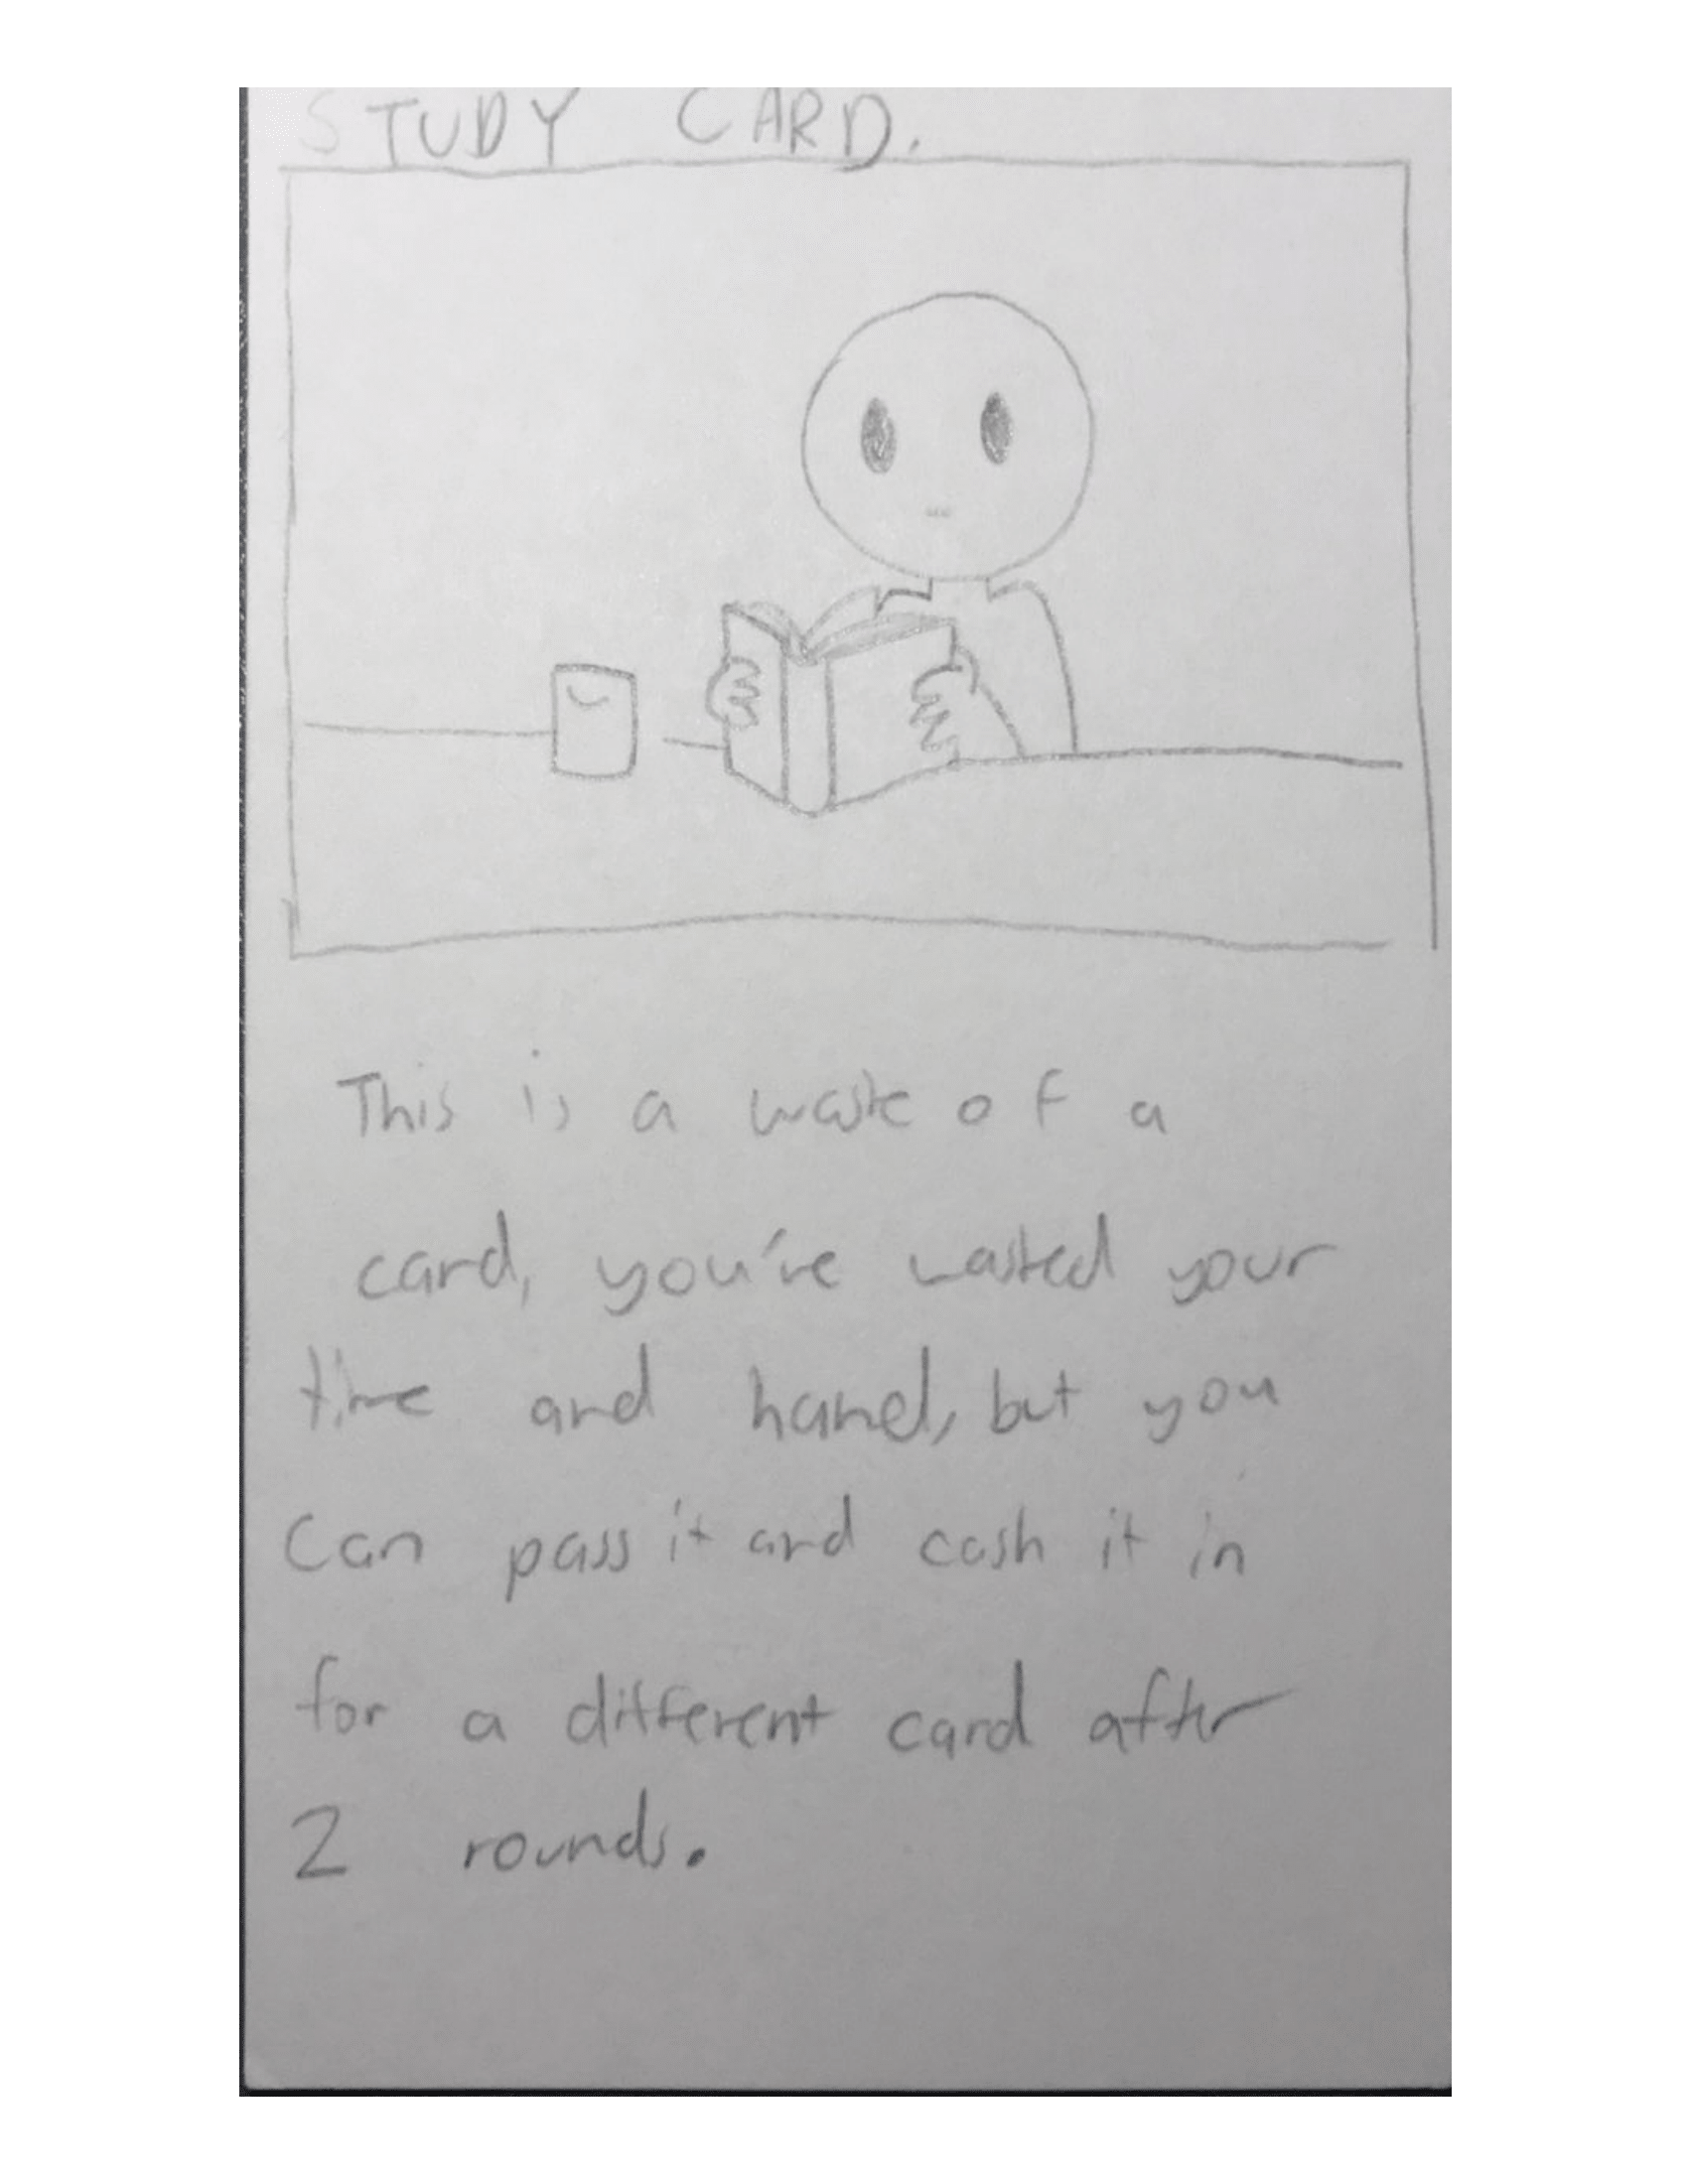 STUDY CARD.
This is a waste of a
card, you've wasted your
time and hand, but you
Can pass it and cash it in
for a different card after
2 rounds.